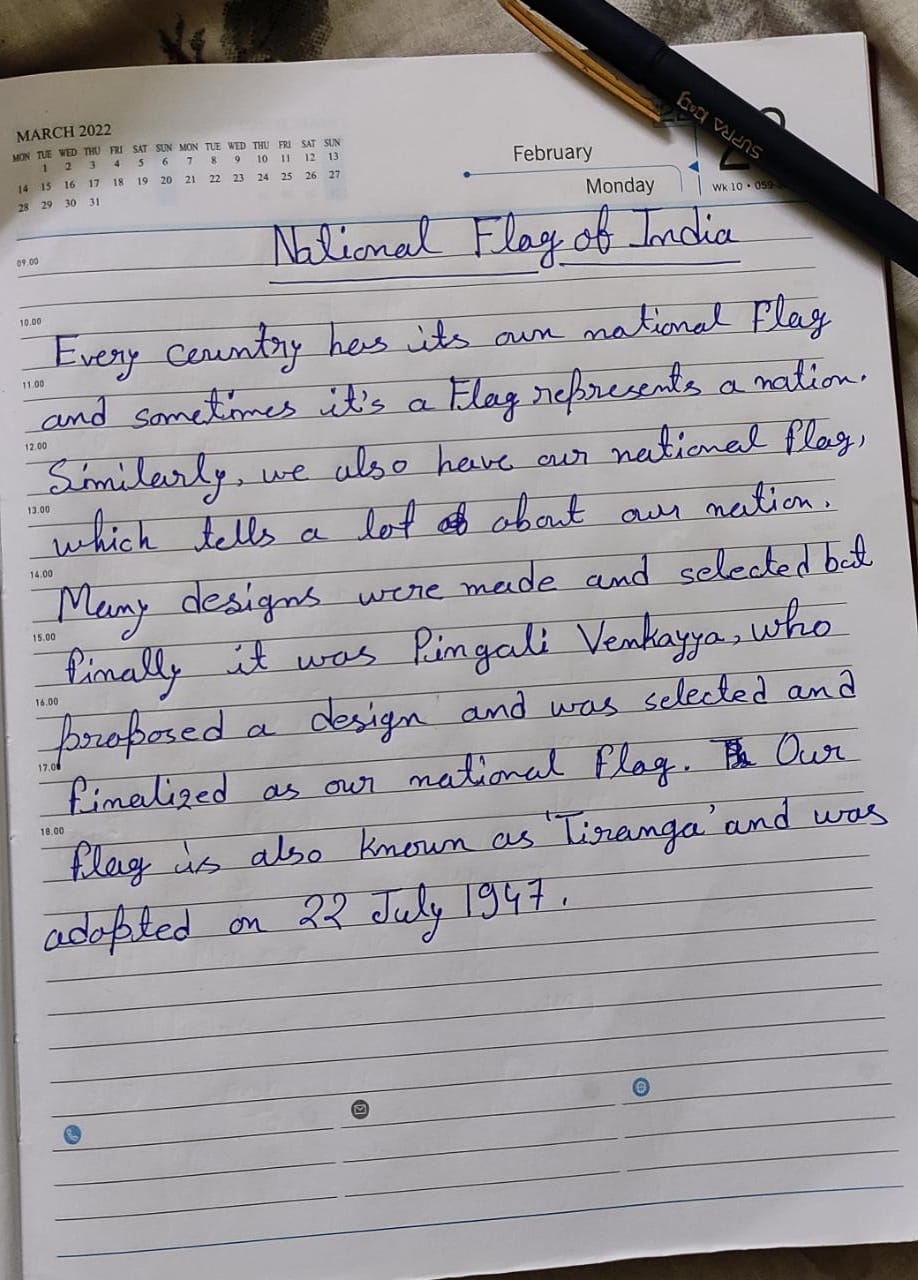 MARCH 2022
MON TUE WED THU FRI SAT SUN MON TUE WED THU FRI SAT SUN
1 2 3 4 5 6 7 8 9 10 11 12 13
14 15 16 17 18 19 20 21 22 23 24 25 26 27
28 29 30 31
February
Monday
Wk 10 • 059-
SUPRA
09.00
National Flag of India
10.00
Every country has its own national Flag
11.00
and sometimes it's a Flag represents a nation.
12.00
Similarly, we also have our national flag,
13.00
which tells a lot about our nation.
14.00
Many designs were made and selected but
15.00
finally it was Pingali Venkayya, who
16.00
proposed a design and was selected and
17.00
finalized as our national flag. Our
18.00
flag is also known as 'Tiranga' and was
adopted on 22 July 1947.